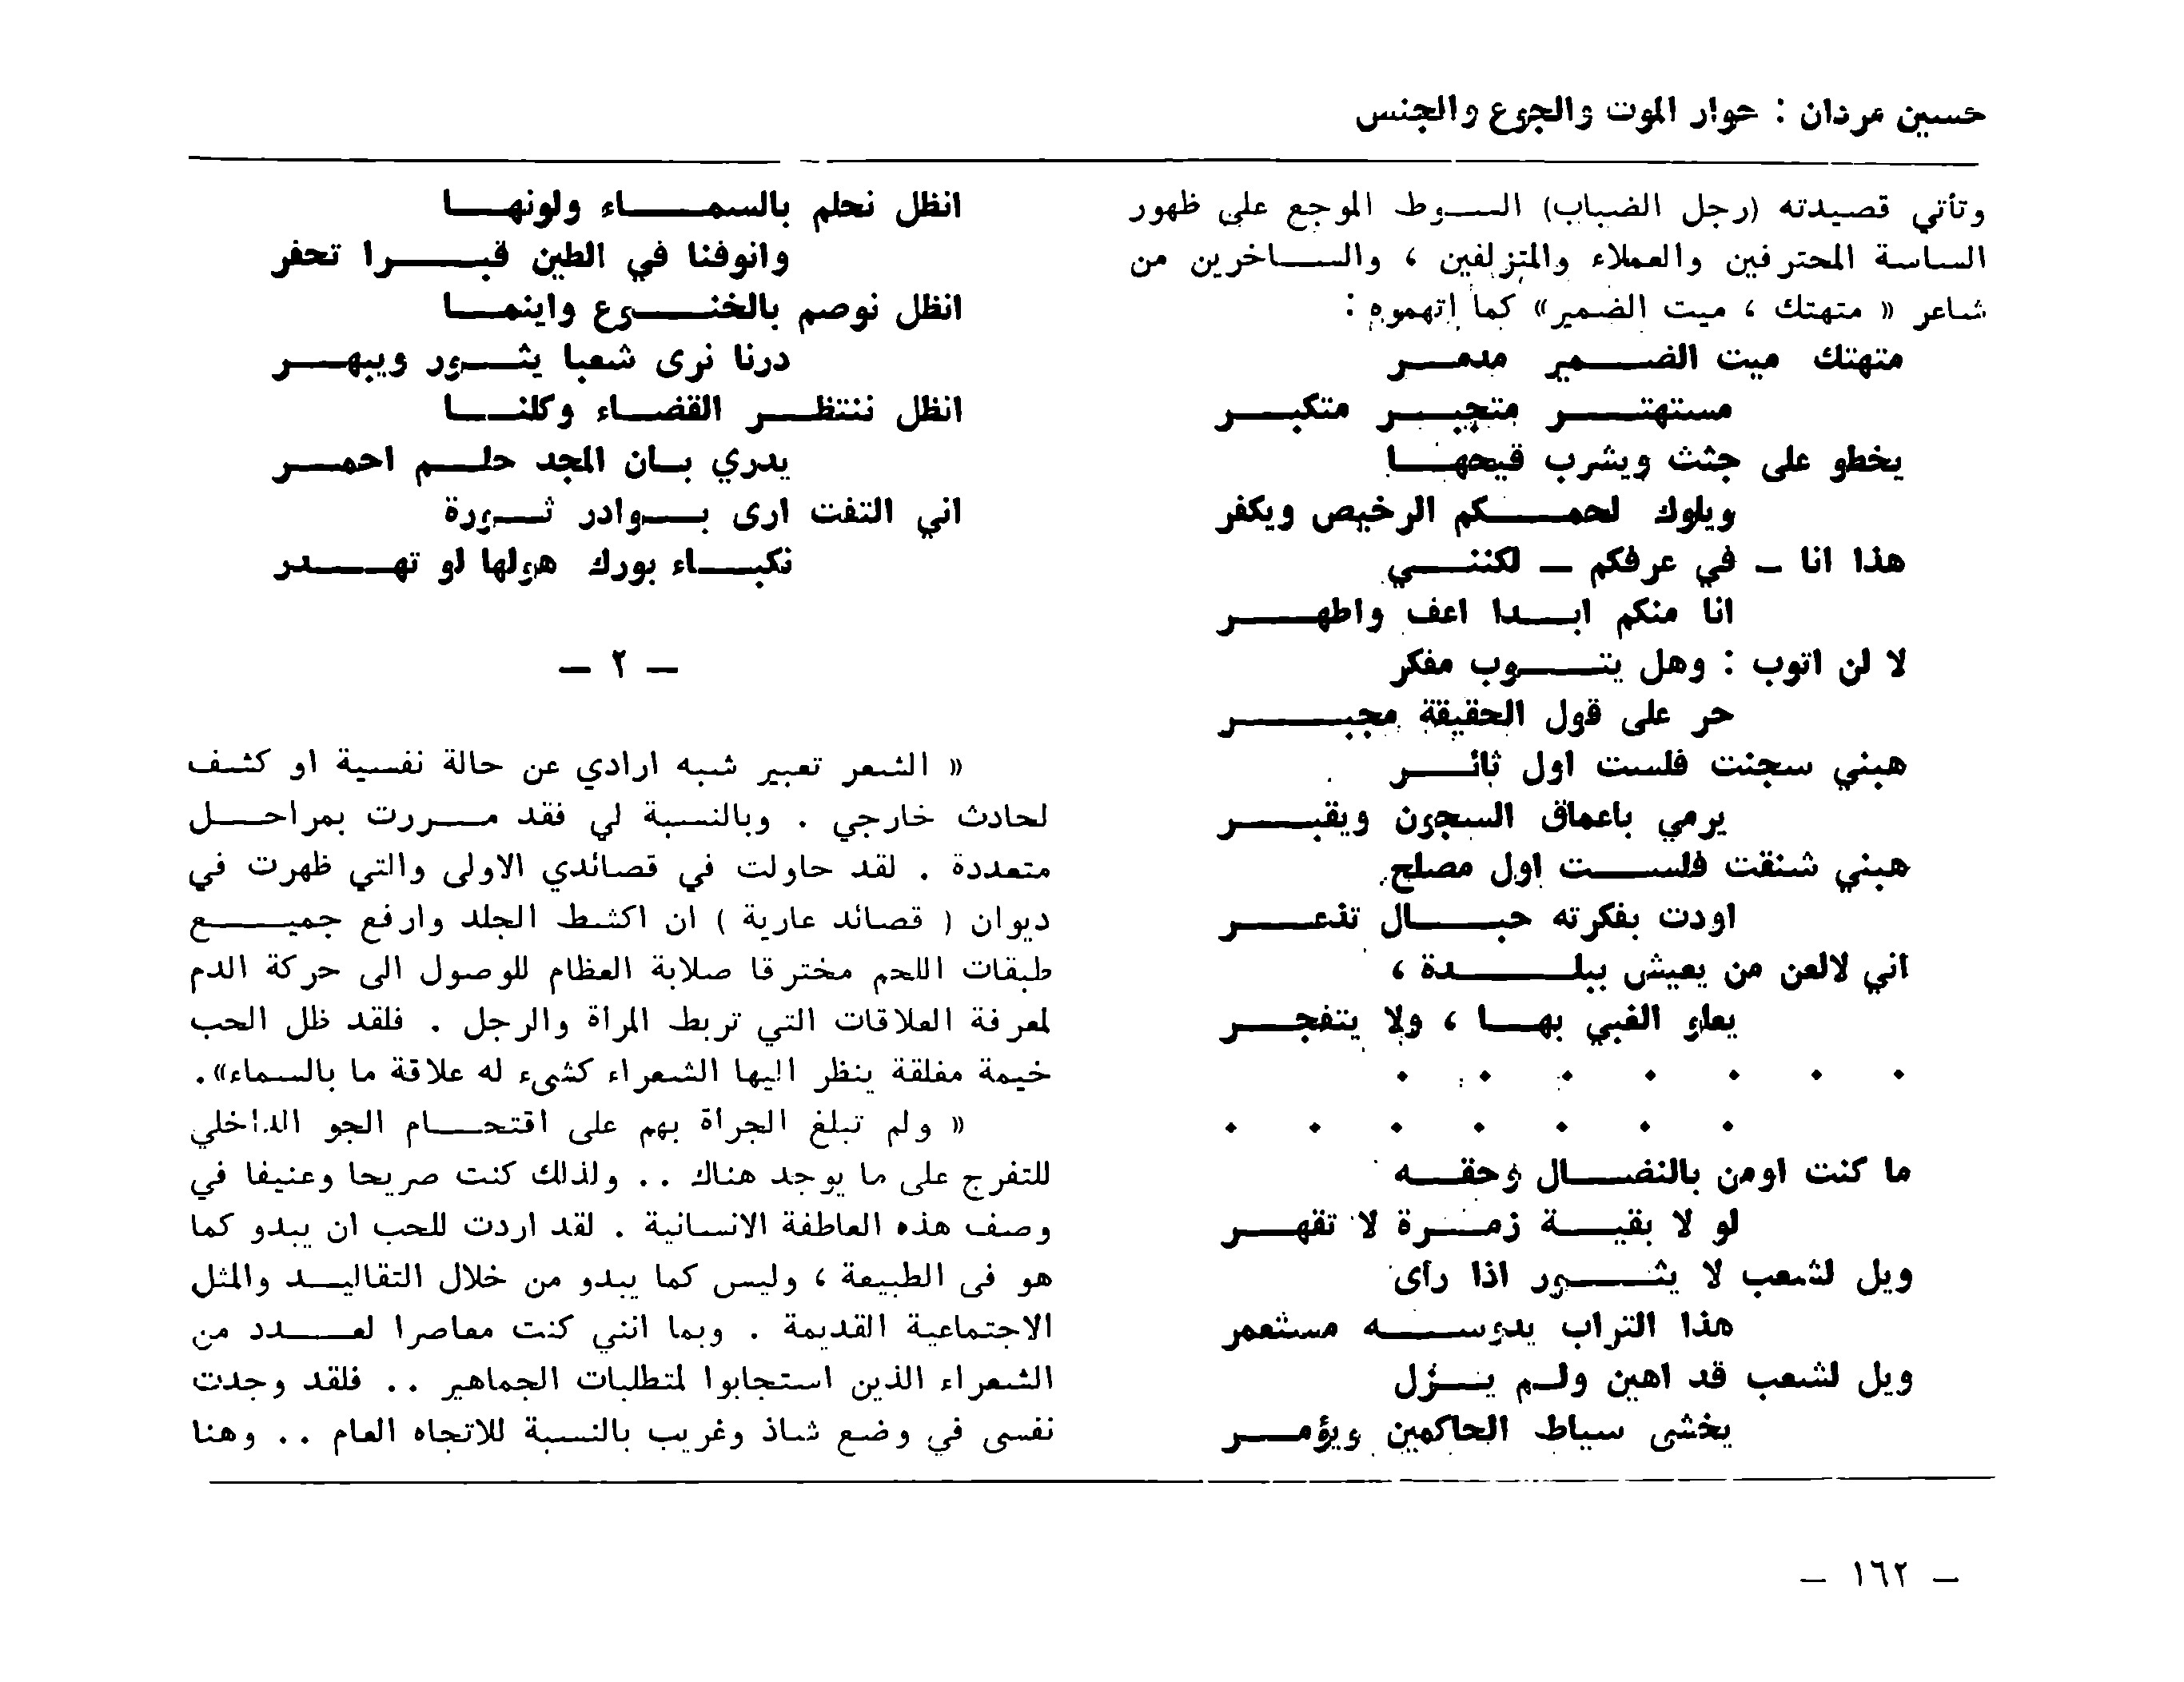 حسين مردان : حوار الموت والجوع والجنس
وتأتي قصيدته (رجل الضباب) السوط الموجع على ظهور
الساسة المحترفين والعملاء والمتزلفين ، والساخرين من
شاعر « متهتك ، ميت الضمير» كما اتهموه :
متهتك ميت الضمير مدمر
مستهتر متجبر متكبر
يخطو على جثث ويشرب قيحها
ويلوك لحمكم الرخيص ويكفر
هذا انا – في عرفكم – لكنني
انا منكم ابدا اعف واطهر
لا لن اتوب : وهل يتوب مفكر
حر على قول الحقيقة مجبر
هبني سجنت فلست اول ثائر
يرمي باعماق السجون ويقبر
هبني شنقت فلست اول مصلح
اودت بفكرته حبال تذعر
اني لالعن من يعيش ببلدة ،
يعلو الغبي بها ، ولا يتفجر
. . . . . . .
. . . . . . .
ما كنت اومن بالنضال وحقه
لو لا بقية زمرة لا تقهر
ويل لشعب لا يثور اذا رأى
هذا التراب يدوسه مستعمر
ويل لشعب قد اهين ولم يزل
يخشى سياط الحاكمين ويؤمر
انظل نحلم بالسماء ولونها
وانوفنا في الطين قبرا تحفر
انظل نوصم بالخنوع واينما
درنا نرى شعبا يثور ويبهر
انظل ننتظر القضاء وكلنا
يدري بان المجد حلم احمر
اني التفت ارى بوادر ثورة
نكباء بورك هولها لو تهدر
– ٢ –
« الشعر تعبير شبه ارادي عن حالة نفسية او كشف
لحادث خارجي . وبالنسبة لي فقد مررت بمراحل
متعددة . لقد حاولت في قصائدي الاولى والتي ظهرت في
ديوان ( قصائد عارية ) ان اكشط الجلد وارفع جميع
طبقات اللحم مخترقا صلابة العظام للوصول الى حركة الدم
لمعرفة العلاقات التي تربط المرأة والرجل . فلقد ظل الحب
خيمة مغلقة ينظر اليها الشعراء كشيء له علاقة ما بالسماء».
« ولم تبلغ الجرأة بهم على اقتحام الجو الداخلي
للتفرج على ما يوجد هناك .. ولذلك كنت صريحا وعنيفا في
وصف هذه العاطفة الانسانية . لقد اردت للحب ان يبدو كما
هو في الطبيعة ، وليس كما يبدو من خلال التقاليد والمثل
الاجتماعية القديمة . وبما انني كنت معاصرا لعدد من
الشعراء الذين استجابوا لمتطلبات الجماهير .. فلقد وجدت
نفسي في وضع شاذ وغريب بالنسبة للاتجاه العام .. وهنا
– ١٦٢ –